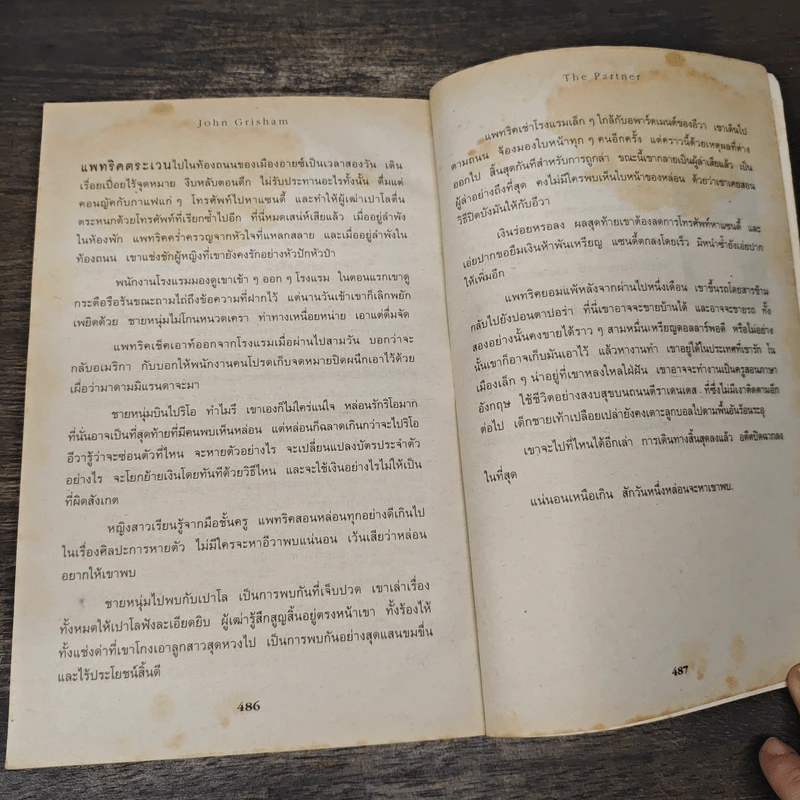 John Grisham
แพทริคตระเวนไปในท้องถนนของเมืองอายซ์เป็นเวลาสองวัน เดิน
เรื่อยเปื่อยไร้จุดหมาย งีบหลับตอนดึก ไม่รับประทานอะไรทั้งนั้น ดื่มแต่
คอนญัคกับกาแฟแก่ ๆ โทรศัพท์ไปหาแซนดี้ และทำให้ผู้เฒ่าเปาโลตื่น
ตระหนกด้วยโทรศัพท์ที่เรียกซ้ำไปอีก ที่นี่หมดเสน่ห์เสียแล้ว เมื่ออยู่ลำพัง
ในห้องพัก แพทริคคร่ำครวญจากหัวใจที่แหลกสลาย และเมื่ออยู่ลำพังใน
ท้องถนน เขาแช่งชักผู้หญิงที่เขายังคงรักอย่างหัวปักหัวปำ
พนักงานโรงแรมมองดูเขาเข้า ๆ ออก ๆ โรงแรม ในตอนแรกเขาดู
กระตือรือร้นขณะถามไถ่ถึงข้อความที่ฝากไว้ แต่นานวันเข้าเขาก็เลิกพยัก
เพยิดด้วย ชายหนุ่มไม่โกนหนวดเครา ท่าทางเหนื่อยหน่าย เอาแต่ดื่มจัด
แพทริคเช็คเอาท์ออกจากโรงแรมเมื่อผ่านไปสามวัน บอกว่าจะ
กลับอเมริกา กับบอกให้พนักงานคนโปรดเก็บจดหมายปิดผนึกเอาไว้ด้วย
เผื่อว่ามาดามมิแรนดาจะมา
ชายหนุ่มบินไปริโอ ทำไมรึ เขาเองก็ไม่ใคร่แน่ใจ หล่อนรักริโอมาก
ที่นั่นอาจเป็นที่สุดท้ายที่มีคนพบเห็นหล่อน แต่หล่อนก็ฉลาดเกินกว่าจะไปริโอ
อีวารู้ว่าจะซ่อนตัวที่ไหน จะหายตัวอย่างไร จะเปลี่ยนแปลงบัตรประจำตัว
อย่างไร จะโยกย้ายเงินโดยทันทีด้วยวิธีไหน และจะใช้เงินอย่างไรไม่ให้เป็น
ที่ผิดสังเกต
หญิงสาวเรียนรู้จากมือชั้นครู แพทริคสอนหล่อนทุกอย่างดีเกินไป
ในเรื่องศิลปะการหายตัว ไม่มีใครจะหาอีวาพบแน่นอน เว้นเสียว่าหล่อน
อยากให้เขาพบ
ชายหนุ่มไปพบกับเปาโล เป็นการพบกันที่เจ็บปวด เขาเล่าเรื่อง
ทั้งหมดให้เปาโลฟังละเอียดยิบ ผู้เฒ่ารู้สึกสูญสิ้นอยู่ตรงหน้าเขา ทั้งร้องไห้
ทั้งแช่งด่าที่เขาโกงเอาลูกสาวสุดหวงไป เป็นการพบกันอย่างสุดแสนขมขื่น
และไร้ประโยชน์สิ้นดี
486
The Partner
แพทริคเช่าโรงแรมเล็ก ๆ ใกล้กับอพาร์ตเมนต์ของอีวา เขาเดินไป
ตามถนน จ้องมองใบหน้าทุก ๆ คนอีกครั้ง แต่คราวนี้ด้วยเหตุผลที่ต่าง
ออกไป สิ้นสุดกันทีสำหรับการถูกล่า ขณะนี้เขากลายเป็นผู้ล่าเสียแล้ว เป็น
ผู้ล่าอย่างถึงที่สุด คงไม่มีใครพบเห็นใบหน้าของหล่อน ด้วยว่าเขาเคยสอน
วิธีปิดบังมันให้กับอีวา
เงินร่อยหรอลง ผลสุดท้ายเขาต้องลดการโทรศัพท์หาแซนดี้ และ
เอ่ยปากขอยืมเงินห้าพันเหรียญ แซนดี้ตกลงโดยเร็ว มิหนำซ้ำยังเอ่ยปาก
ให้เพิ่มอีก
แพทริคยอมแพ้หลังจากผ่านไปหนึ่งเดือน เขาขึ้นรถโดยสารข้าม
กลับไปยังปอนตาปอร่า ที่นี่เขาอาจจะขายบ้านได้ และอาจจะขายรถ ทั้ง
สองอย่างนั้นคงขายได้ราว ๆ สามหมื่นเหรียญดอลลาร์พอดี หรือไม่อย่าง
นั้นเขาก็อาจเก็บมันเอาไว้ แล้วหางานทำ เขาอยู่ได้ในประเทศที่เขารัก ใน
เมืองเล็ก ๆ น่าอยู่ที่เขาหลงใหลใฝ่ฝัน เขาอาจจะทำงานเป็นครูสอนภาษา
อังกฤษ ใช้ชีวิตอย่างสงบสุขบนถนนดีราเดนเดส ที่ซึ่งไม่มีเงาติดตามอีก
ต่อไป เด็กชายเท้าเปลือยเปล่ายังคงเตะลูกบอลไปตามพื้นอันร้อนระอุ
เขาจะไปที่ไหนได้อีกเล่า การเดินทางสิ้นสุดลงแล้ว อดีตปิดฉากลง
ในที่สุด
แน่นอนเหนือเกิน สักวันหนึ่งหล่อนจะหาเขาพบ
487